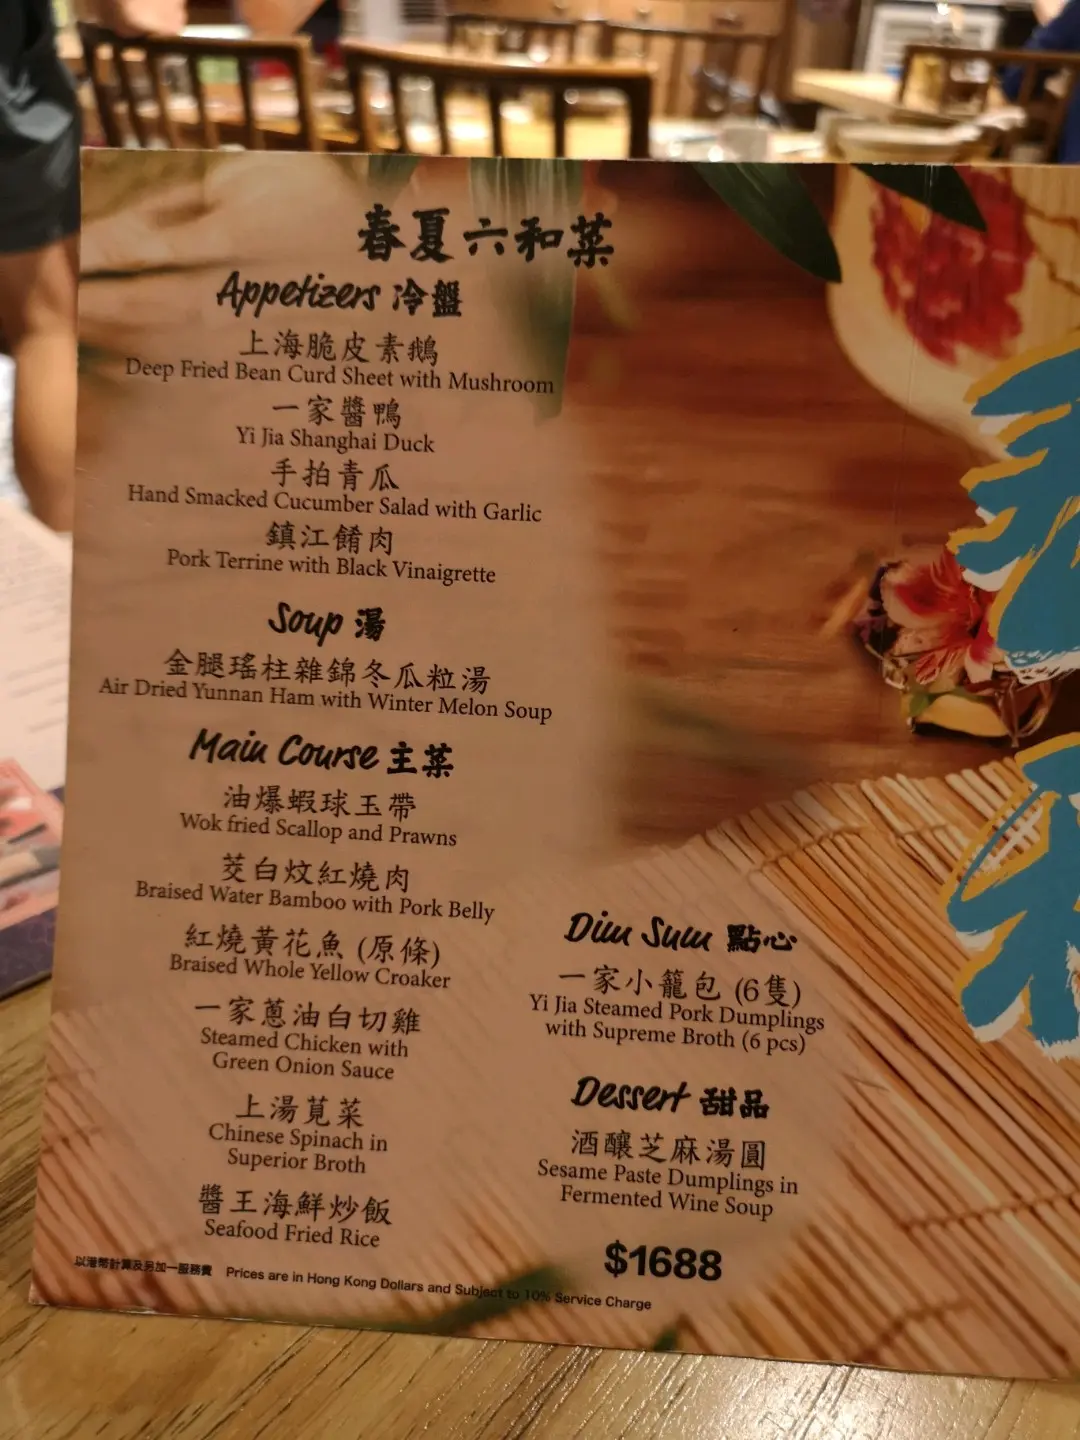 春夏六和菜
Appetizers 冷盤
上海脆皮素鵝
Deep Fried Bean Curd Sheet with Mushroom
一家醬鴨
Yi Jia Shanghai Duck
手拍青瓜
Hand Smacked Cucumber Salad with Garlic
鎮江餚肉
Pork Terrine with Black Vinaigrette
Soup 湯
金腿瑤柱雜錦冬瓜粒湯
Air Dried Yunnan Ham with Winter Melon Soup
Main Course 主菜
油爆蝦球玉帶
Wok fried Scallop and Prawns
茭白炆紅燒肉
Braised Water Bamboo with Pork Belly
紅燒黃花魚 (原條)
Braised Whole Yellow Croaker
一家蔥油白切雞
Steamed Chicken with
Green Onion Sauce
上湯莧菜
Chinese Spinach in
Superior Broth
醬王海鮮炒飯
Seafood Fried Rice
Dim Sum 點心
一家小籠包 (6隻)
Yi Jia Steamed Pork Dumplings
with Supreme Broth (6 pcs)
Dessert 甜品
酒釀芝麻湯圓
Sesame Paste Dumplings in
Fermented Wine Soup
$1688
以港幣計算及另加一服務費 Prices are in Hong Kong Dollars and Subject to 10% Service Charge